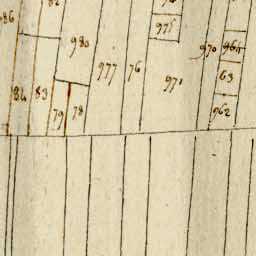 975
980
970
977
76
971
63
84
83
79
78
962